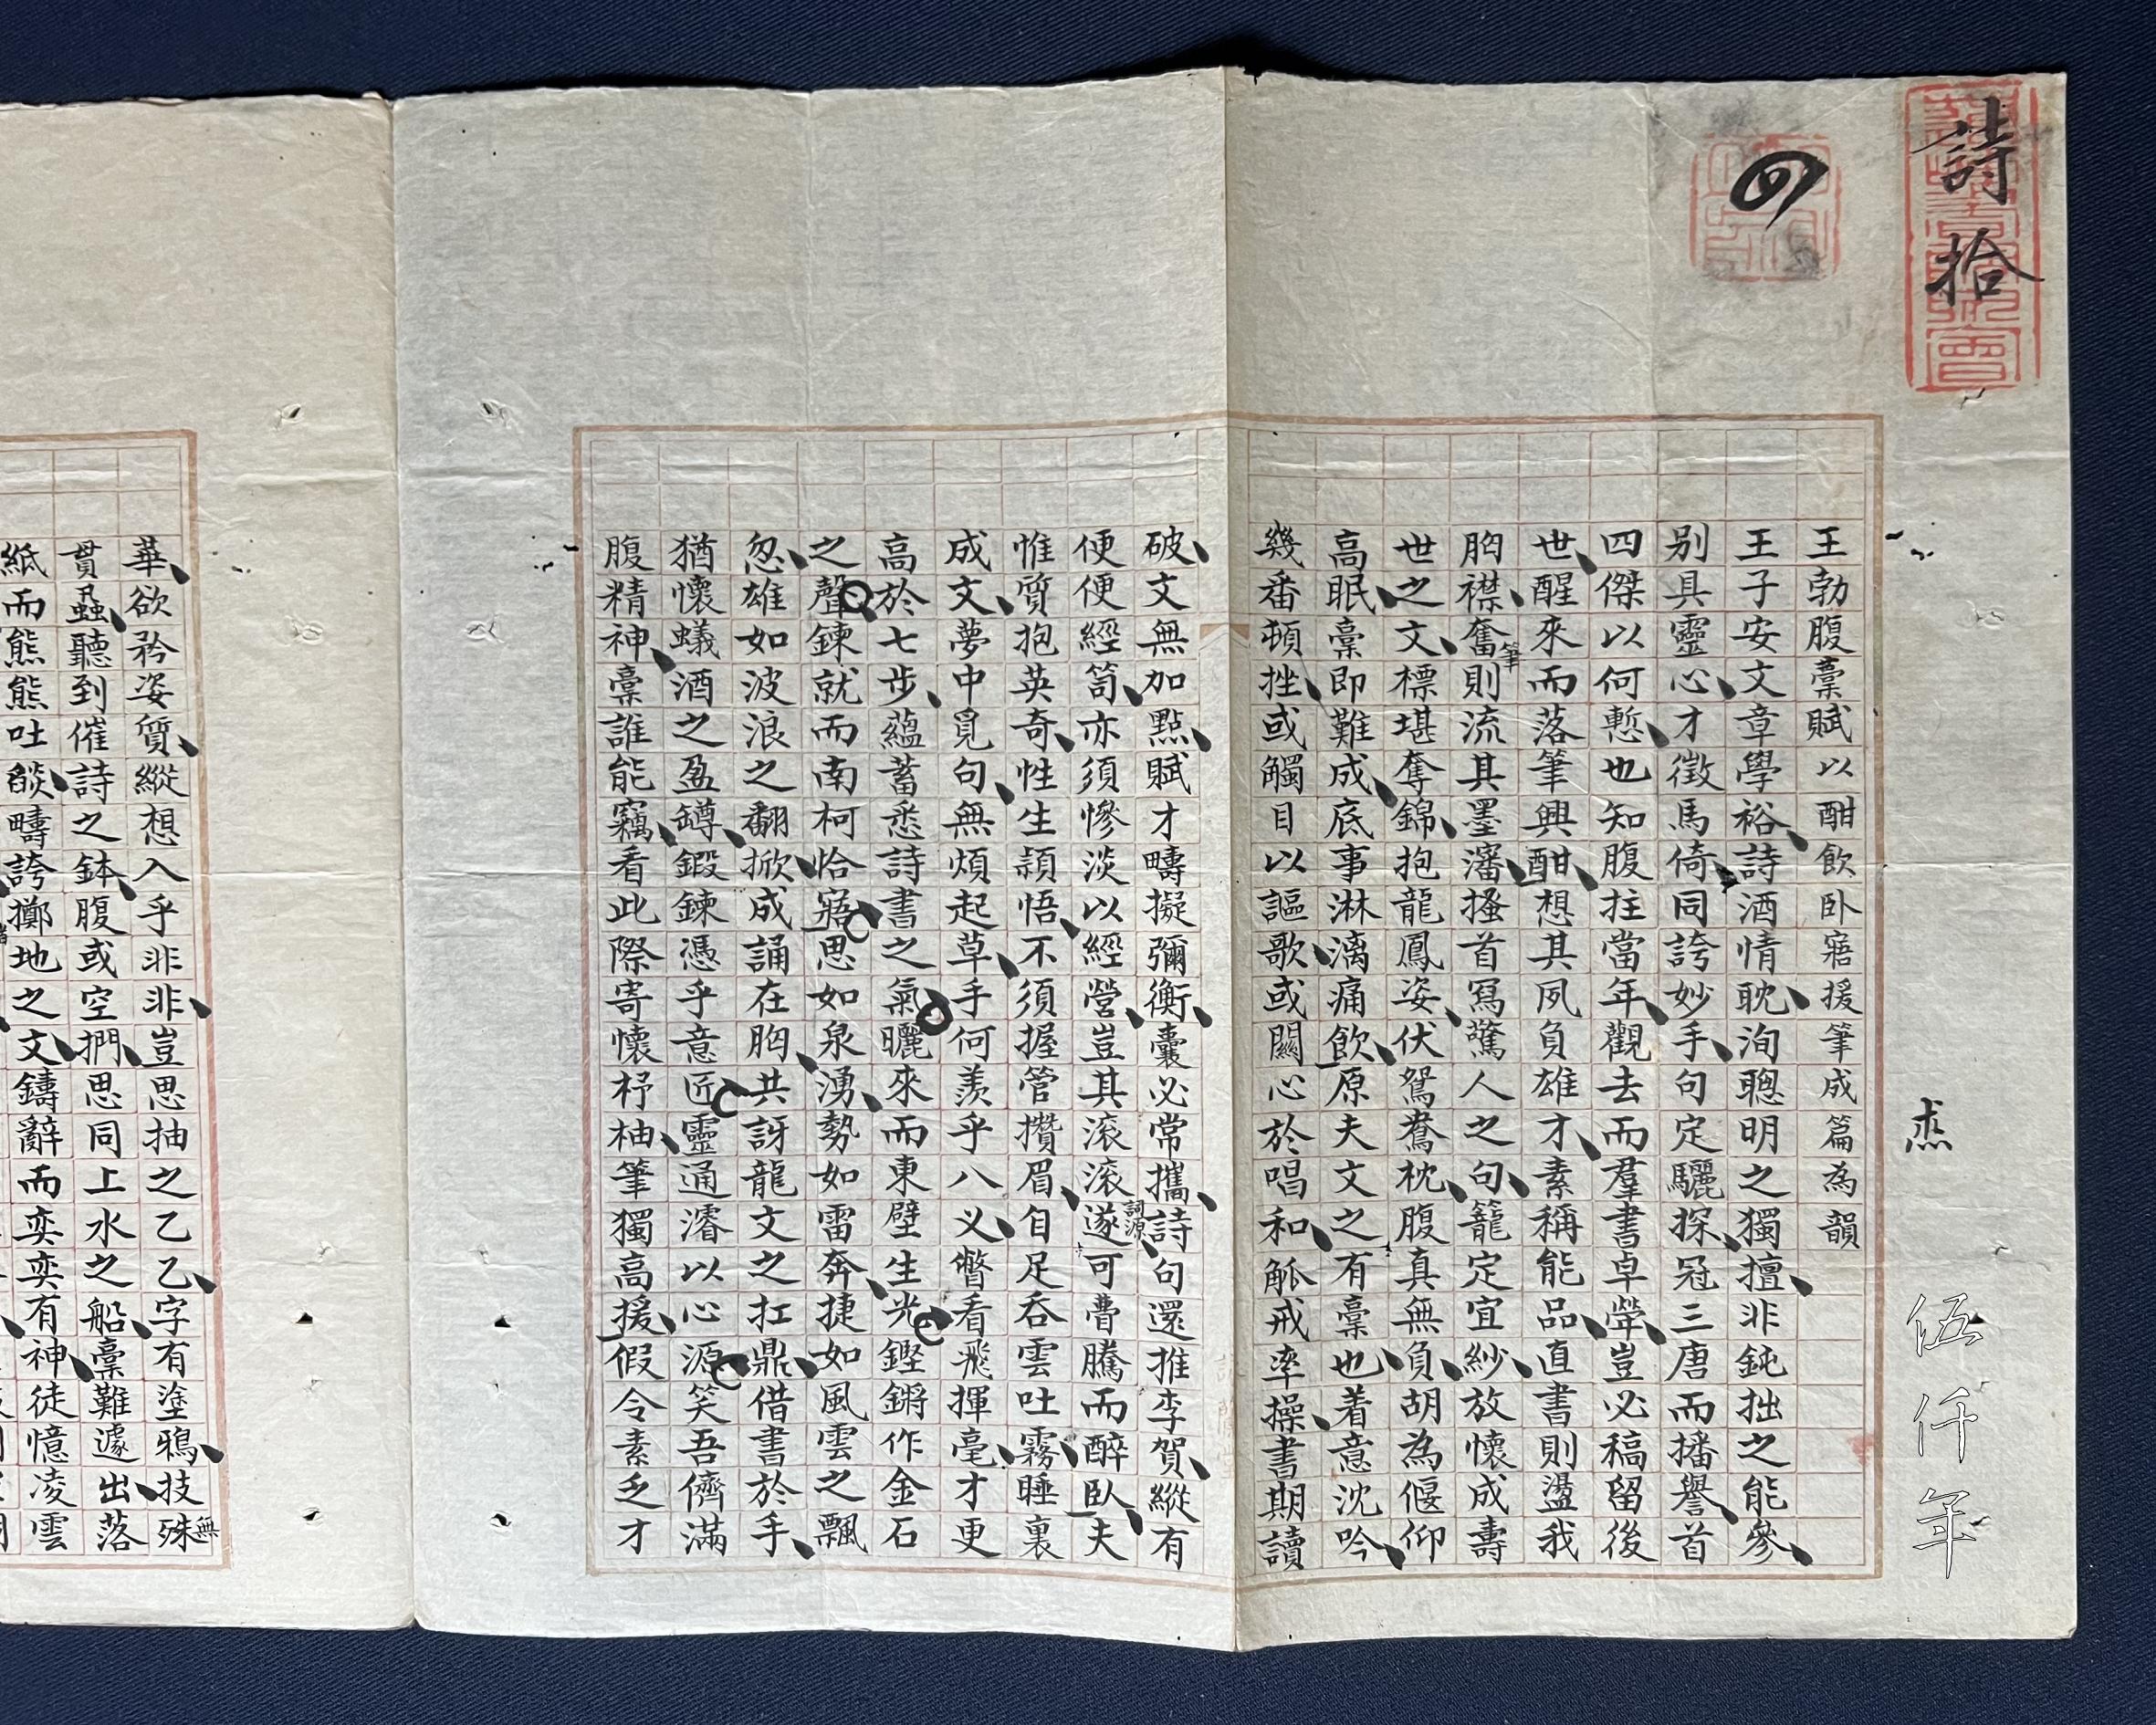 詩拾
王勃腹藁賦以酣飲臥寤援筆成篇為韻
王子安文章學裕詩酒情耽洵聰明之獨擅非鈍拙之能參
別具靈心才徵馬倚同誇妙手句定驪探冠三唐而播譽首
四傑以何慙也知腹拄當年觀去而羣書卓犖豈必稿留後
世醒來而落筆興酣想其夙負雄才素稱能品直書則盪我
胸襟奮筆則流其墨瀋搔首寫驚人之句籠定宜紗放懷成壽
世之文標堪奪錦抱龍鳳姿伏鴛鴦枕腹真無負胡為偃仰
高眠藁即難成底事淋漓痛飲原夫文之有藁也着意沈吟
幾番頓挫或觸目以謳歌或關心於唱和觚戒率操書期讀
破文無加點賦才疇擬彌衡囊必常攜詩句還推李賀縱有
便便經笥亦須慘淡以經營豈其滾滾詞源遂可瞢騰而醉臥夫
惟質抱英奇性生穎悟不須握管攢眉自足吞雲吐霧睡裏
成文夢中覓句無煩起草手何羨乎八义瞥看飛揮毫才更
高於七步蘊蓄悉詩書之氣曬來而東壁生光鏗鏘作金石
之聲鍊就而南柯恰寤思如泉湧勢如雷奔捷如風雲之飄
忽雄如波浪之翻掀成誦在胸共訝龍文之扛鼎借書於手
猶懷蟻酒之盈罇鍛鍊憑乎意匠靈通濬以心源笑吾儕滿
腹精神藁誰能竊看此際寄懷杼柚筆獨高援假令素乏才
華欲矜姿質縱想入乎非非豈思抽之乙乙字有塗鴉技殊無
貫蝨聽到催詩之鉢腹或空捫思同上水之船藁難遽出落
紙而熊熊吐燄疇誇擲地之文鑄辭而奕奕有神徒憶凌雲
伍仟年